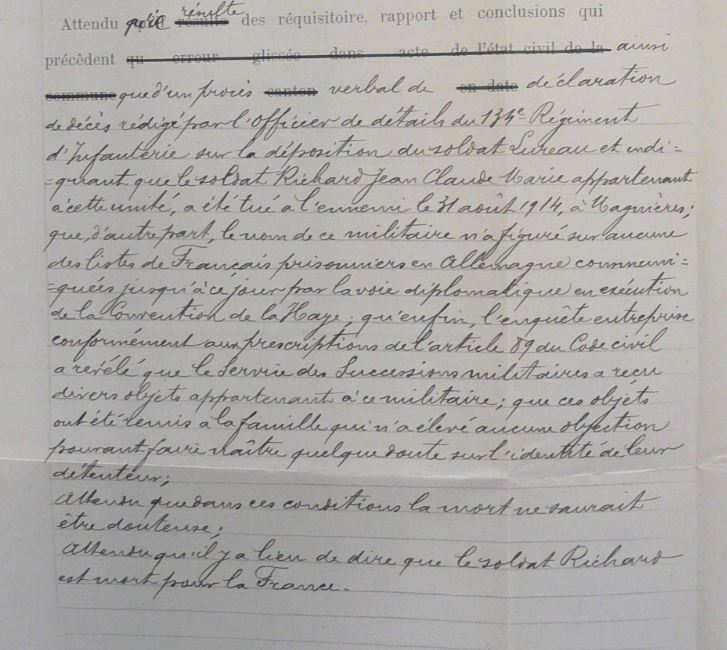 Attendu qu'il résulte des réquisitoire, rapport et conclusions qui
précèdent qu erreur glissée dans acte de l'état civil de la ainsi
commune que d'un procès canton verbal de en date déclaration
de décès rédigé par l'Officier de détails du 134e Régiment
d'Infanterie sur la déposition du soldat Lureau et indi=
=quant que le soldat Richard Jean Claude Marie appartenant
à cette unité, a été tué à l'ennemi le 31 août 1914, à Magnières;
que, d'autre part, le nom de ce militaire n'a figuré sur aucune
des listes de Français prisonniers en Allemagne communi=
=quées jusqu'à ce jour par la voie diplomatique en exécution
de la Convention de la Haye; qu'enfin, l'enquête entreprise
conformément aux prescriptions de l'article 89 du Code civil
a révélé que le Service des Successions militaires a reçu
divers objets appartenant à ce militaire; que ces objets
ont été remis à la famille qui n'a élevé aucune objection
pouvant faire naître quelque doute sur l'identité de leur
détenteur;
Attendu que dans ces conditions la mort ne saurait
être douteuse;
Attendu qu'il y a lieu de dire que le soldat Richard
est mort pour la France.